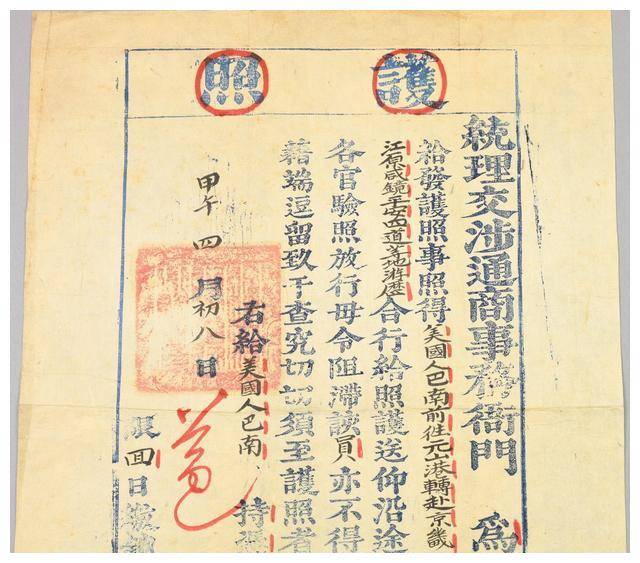 護照
統理交涉通商事務衙門 為
給發護照事照得美國人巴南前往元山港轉赴京畿
江原咸鏡平安四道等地游歷合行給照護送仰沿途
各官驗照放行毋令阻滯該員亦不得
藉端逗留致干查究切切須至護照者
右給美國人巴南 持憑
甲午四月初八日
限回日繳銷